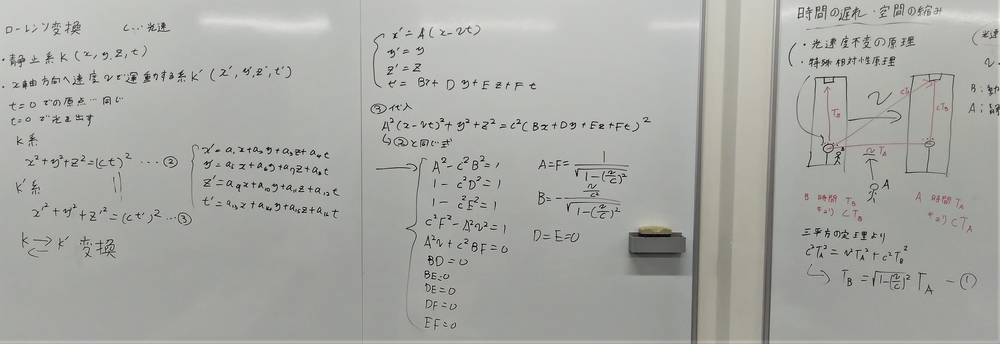 ローレンツ変換　c…光速
・静止系K(x,y,z,t)
・x軸方向へ速度vで運動する系K'(x',y',z',t')
t=0での原点…同じ
t=0で光を出す
K系
x²+y²+z²=(ct)² …②
K'系
x'²+y'²+z'²=(ct')² …③
K⇄K' 変換
x'=a₁x+a₂y+a₃z+a₄t
y'=a₅x+a₆y+a₇z+a₈t
z'=a₉x+a₁₀y+a₁₁z+a₁₂t
t'=a₁₃x+a₁₄y+a₁₅z+a₁₆t
x'=A(x-vt)
y'=y
z'=z
t'=Bx+Dy+Ez+Ft
③代入
A²(x-vt)²+y²+z²=c²(Bx+Dy+Ez+Ft)²
↳②と同じ式
A²-c²B²=1
1-c²D²=1
1-c²E²=1
c²F²-A²v²=1
A²v+c²BF=0
BD=0
BE=0
DE=0
DF=0
EF=0
A=F=1/√(1-(v/c)²)
B=-(v/c²)/√(1-(v/c)²)
D=E=0
時間の遅れ・空間の縮み
・光速度不変の原理
・特殊相対性原理
(光速
v
B:動
A:静
TB
cTA
v
cTB
v
A
B 時間 TB
キョリ cTB
A 時間 TA
キョリ cTA
三平方の定理より
c²TA²=v²TA²+c²TB²
↳ TB=√(1-(v/c)²) TA －①